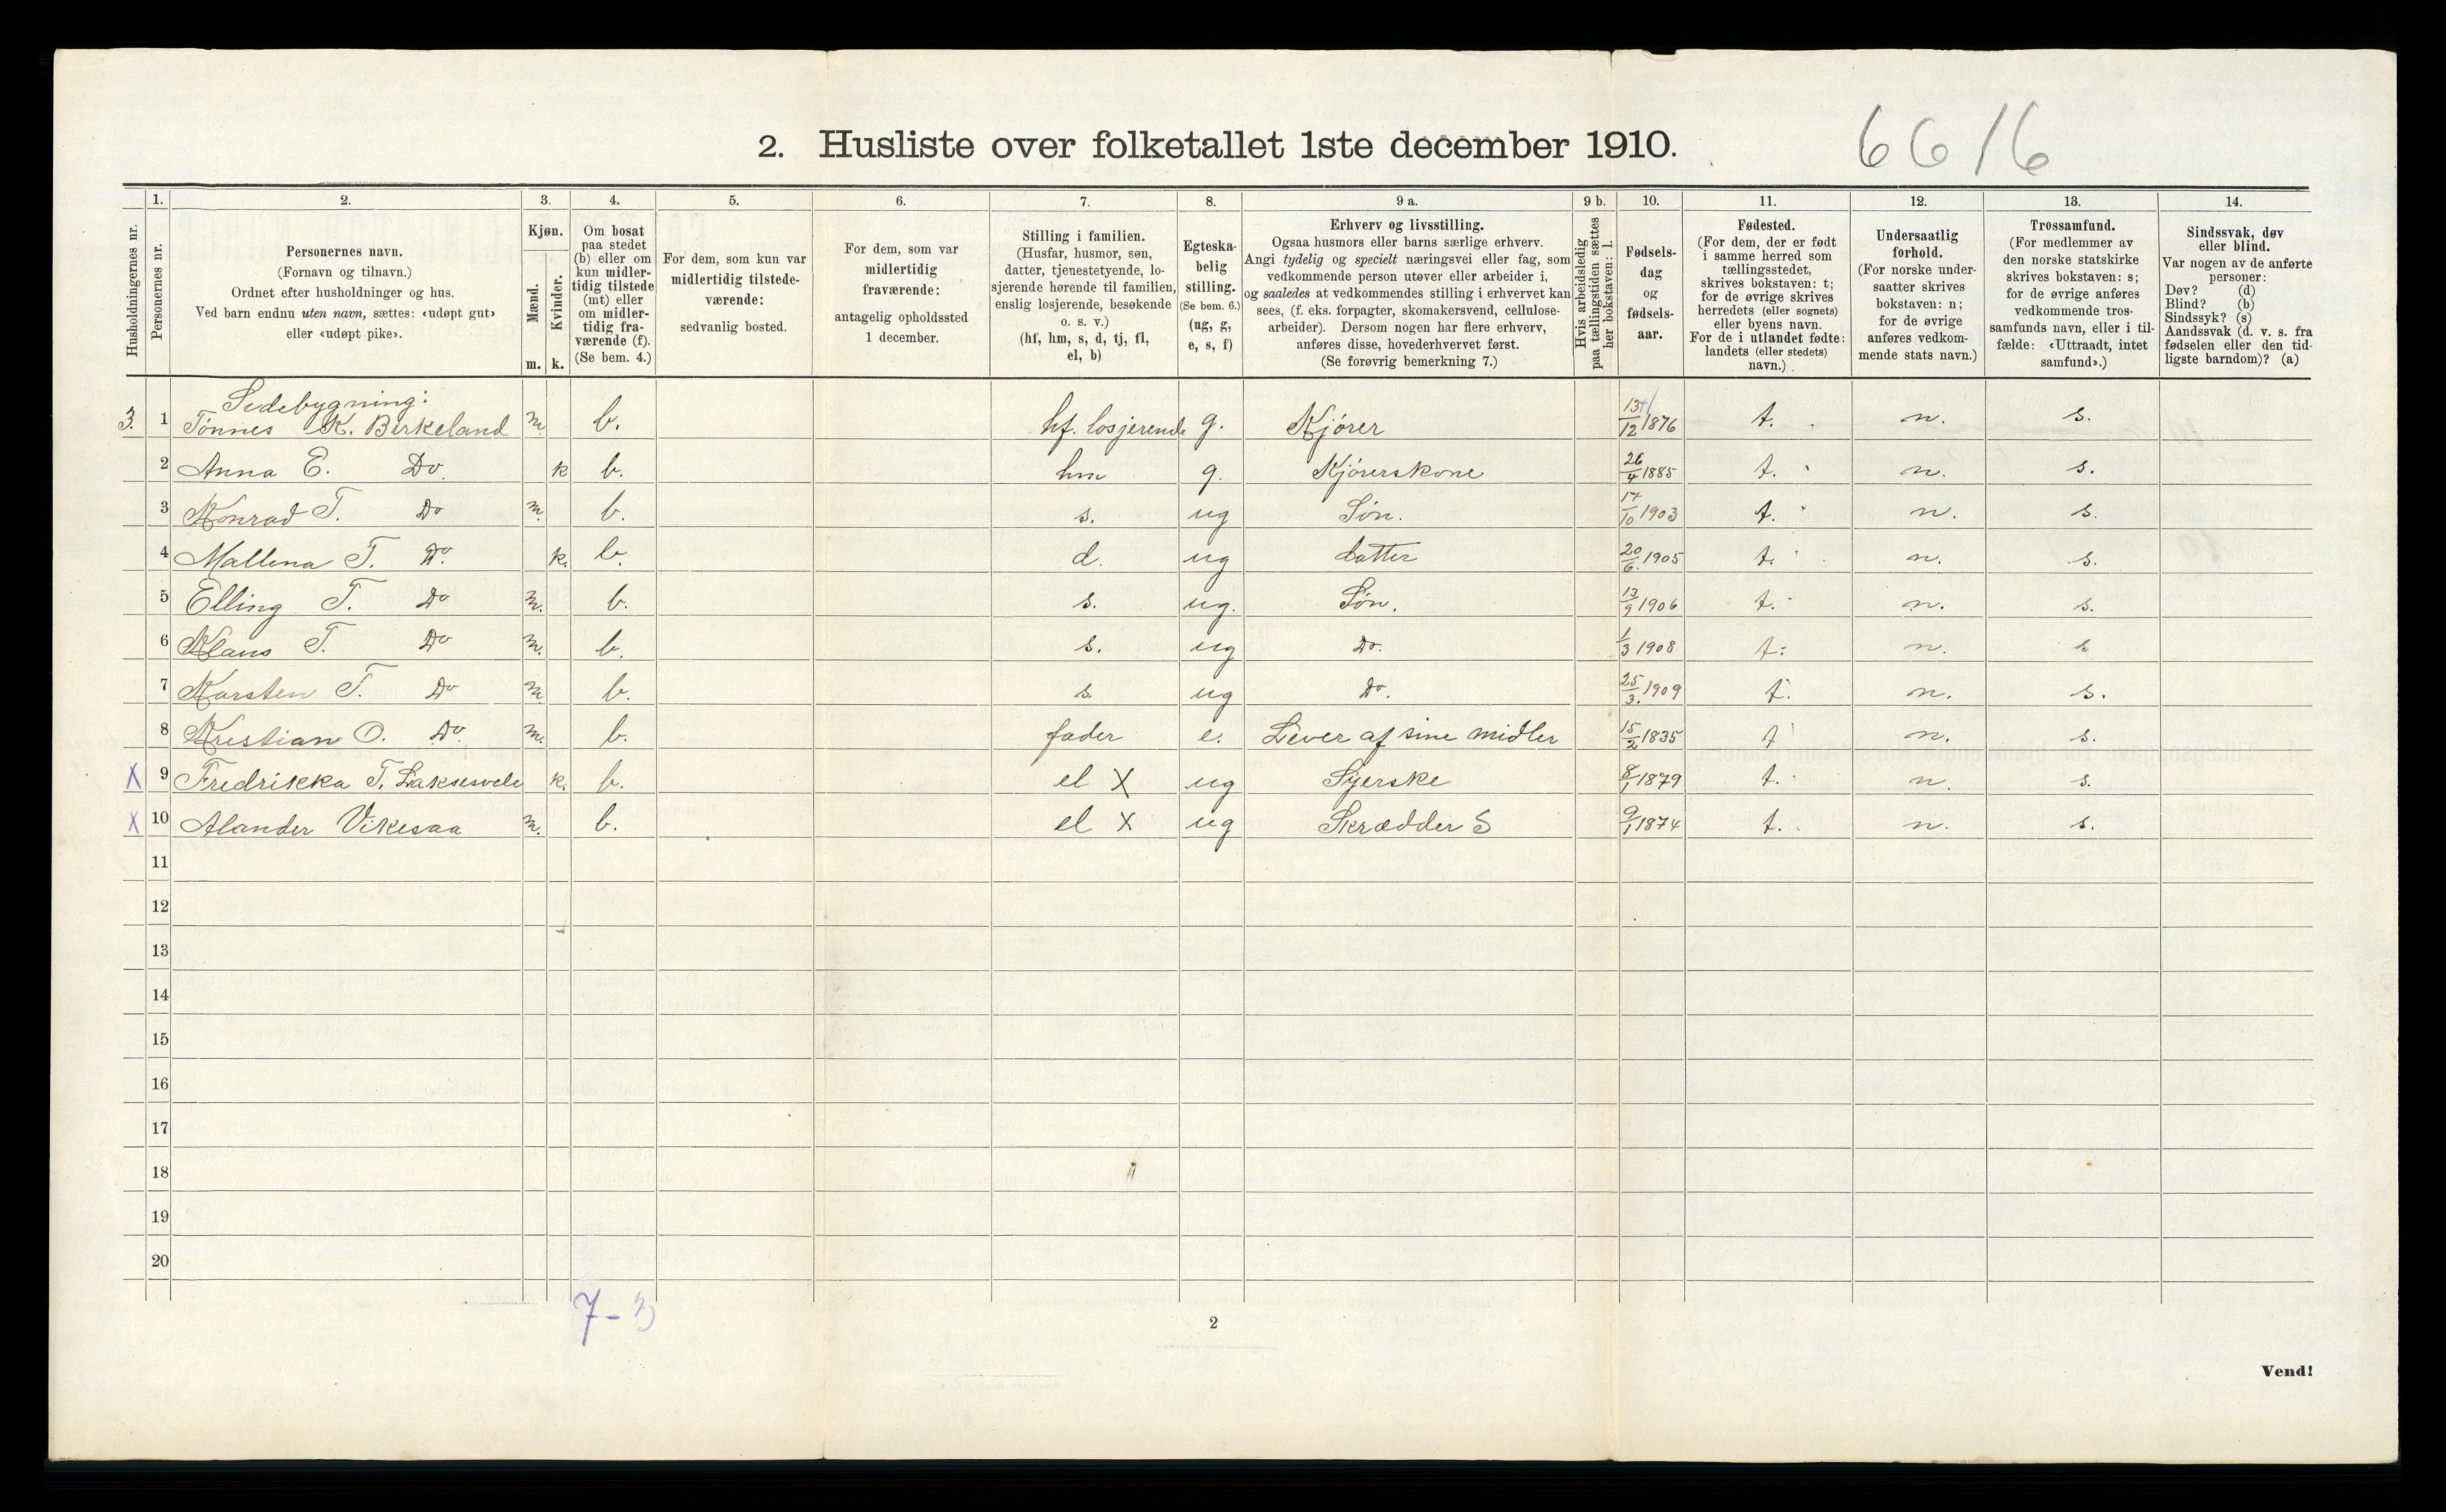 2. Husliste over folketallet 1ste december 1910.
6616
Husholdningernes nr.
1. Personernes nr.
2. Personernes navn.
(Fornavn og tilnavn.)
Ordnet efter husholdninger og hus.
Ved barn endnu uten navn, sættes: «udøpt gut»
eller «udøpt pike».
3. Kjøn.
Mænd. m.
Kvinder. k.
4. Om bosat
paa stedet
(b) eller om
kun midler-
tidig tilstede
(mt) eller
om midler-
tidig fra-
værende (f).
(Se bem. 4.)
5. For dem, som kun var
midlertidig tilstede-
værende:
sedvanlig bosted.
6. For dem, som var
midlertidig
fraværende:
antagelig opholdssted
1 december.
7. Stilling i familien.
(Husfar, husmor, søn,
datter, tjenestetyende, lo-
sjerende hørende til familien,
enslig losjerende, besøkende
o. s. v.)
(hf, hm, s, d, tj, fl,
el, b)
8. Egteska-
belig
stilling.
(Se bem. 6.)
(ug, g,
e, s, f)
9 a. Erhverv og livsstilling.
Ogsaa husmors eller barns særlige erhverv.
Angi tydelig og specielt næringsvei eller fag, som
vedkommende person utøver eller arbeider i,
og saaledes at vedkommendes stilling i erhvervet kan
sees, (f. eks. forpagter, skomakersvend, cellulose-
arbeider). Dersom nogen har flere erhverv,
anføres disse, hovederhvervet først.
(Se forøvrig bemerkning 7.)
9 b. Hvis arbeidsledig
paa tællingstiden sættes
her bokstaven: l.
10. Fødsels-
dag
og
fødsels-
aar.
11. Fødested.
(For dem, der er født
i samme herred som
tællingsstedet,
skrives bokstaven: t;
for de øvrige skrives
herredets (eller sognets)
eller byens navn.
For de i utlandet fødte:
landets (eller stedets)
navn.)
12. Undersaatlig
forhold.
(For norske under-
saatter skrives
bokstaven: n;
for de øvrige
anføres vedkom-
mende stats navn.)
13. Trossamfund.
(For medlemmer av
den norske statskirke
skrives bokstaven: s;
for de øvrige anføres
vedkommende tros-
samfunds navn, eller i til-
fælde: «Uttraadt, intet
samfund».)
14. Sindssvak, døv
eller blind.
Var nogen av de anførte
personer:
Døv? (d)
Blind? (b)
Sindssyk? (s)
Aandssvak (d. v. s. fra
fødselen eller den tid-
ligste barndom)? (a)
Sidebygning:
3. 1 Tønnes K. Birkeland m b. hf. losjerende g. Kjører 13/12 1876 t. n. s.
2 Anna E. Do. k b. hm g. Kjørerskone 26/4 1885 t. n. s.
3 Konrad T. Do m. b. s. ug Søn. 17/10 1903 t. n. s.
4 Mallena T. Do. k. b. d. ug datter 20/6 1905 t. n. s.
5 Elling T. Do m. b. s. ug. Søn. 13/9 1906 t. n. s.
6 Klaus T. Do m. b. s. ug Do. 1/3 1908 t. n. s
7 Karsten T. Do m b. s. ug Do. 25/3 1909 t. n. s.
8 Kristian O. Do. m. b. fader e. Lever af sine midler 15/2 1835 t n. s.
X 9 Fredrikka T. Laksesvele k. b. el X ug Syerske 8/1 1879 t. n. s.
X 10 Alander Vikesaa m. b. el X ug Skrædder S 9/1 1874 t. n. s.
11
12
13
14
15
16
17
18
19
20
7-3
2
Vend!